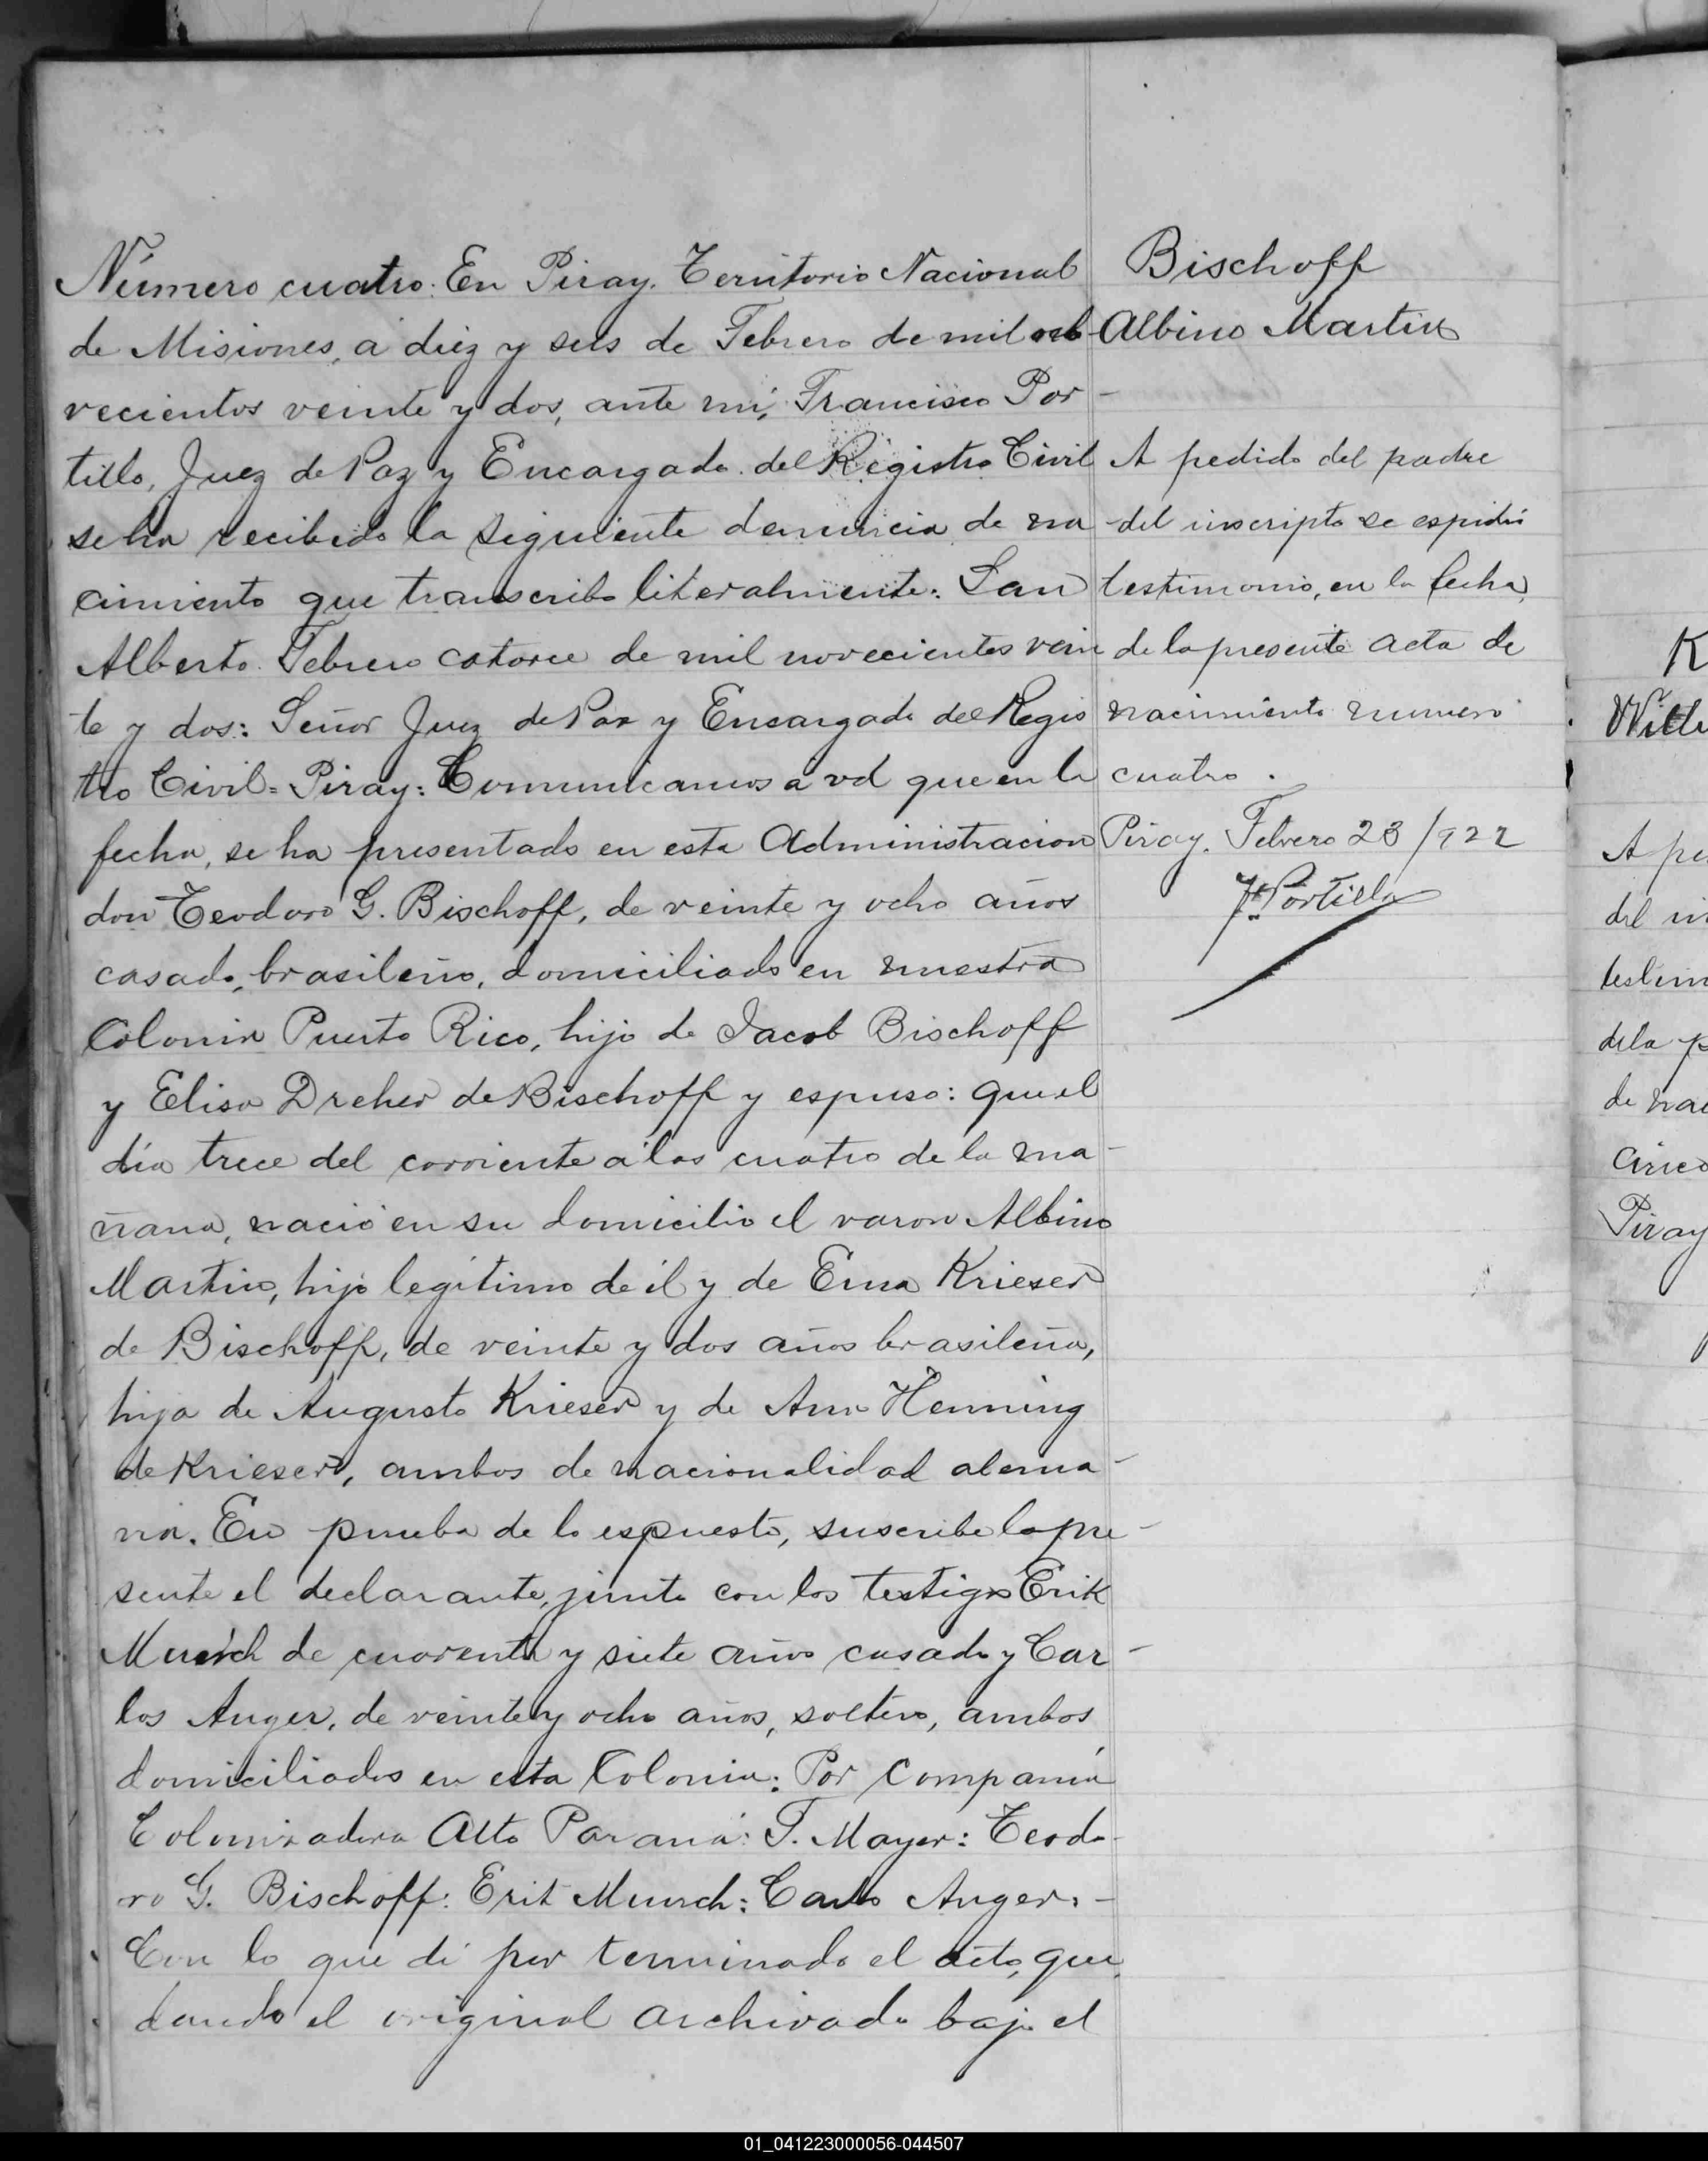 Número cuatro: En Piray. Territorio Nacional
de Misiones, a diez y seis de Febrero de mil no
vecientos veinte y dos, ante mi, Francisco Por-
tillo, Juez de Paz y Encargado del Registro Civil
se ha recibido la siguiente denuncia de na
cimiento que transcribo literalmente: San
Alberto. Febrero catorce de mil novecientos vein
te y dos: Señor Juez de Paz y Encargado del Regis
tro Civil = Piray: Comunicamos a vd que en la
fecha, se ha presentado en esta Administracion
don Teodoro G. Bischoff, de veinte y ocho años
casado, brasileño, domiciliado en nuestra
Colonia Puerto Rico, hijo de Jacob Bischoff
y Elisa Dreher de Bischoff y espuso: que el
día trece del corriente a las cuatro de la ma-
ñana, nació en su domicilio el varon Albino
Martin, hijo legítimo de él y de Erna Krieser
de Bischoff, de veinte y dos años brasileña,
hija de Augusto Krieser y de Ana Henning
de Krieser, ambos de nacionalidad alema-
na. En prueba de lo espuesto, suscribe la pre-
sente el declarante, junto con los testigos Erik
Munch de cuarenta y siete años casado y Car-
los Auger, de veinte y ocho años, soltero, ambos
domiciliados en esta Colonia: Por Compañía
Colonizadora Alto Paraná: T. Mayer: Teodo-
ro G. Bischoff: Erik Munch: Carlos Auger.-
Con lo que di por terminado el acto, que
dando el original archivado bajo el
Bischoff
Albino Martin
A pedido del padre
del inscripto se espidió
testimonio, en la fecha,
de la presente acta de
nacimiento numero
cuatro.
Piray. Febrero 23/922
F. Portillo
K
A pe
del in
testim
de la p
de nac
cinco
Piray
01_041223000056-044507